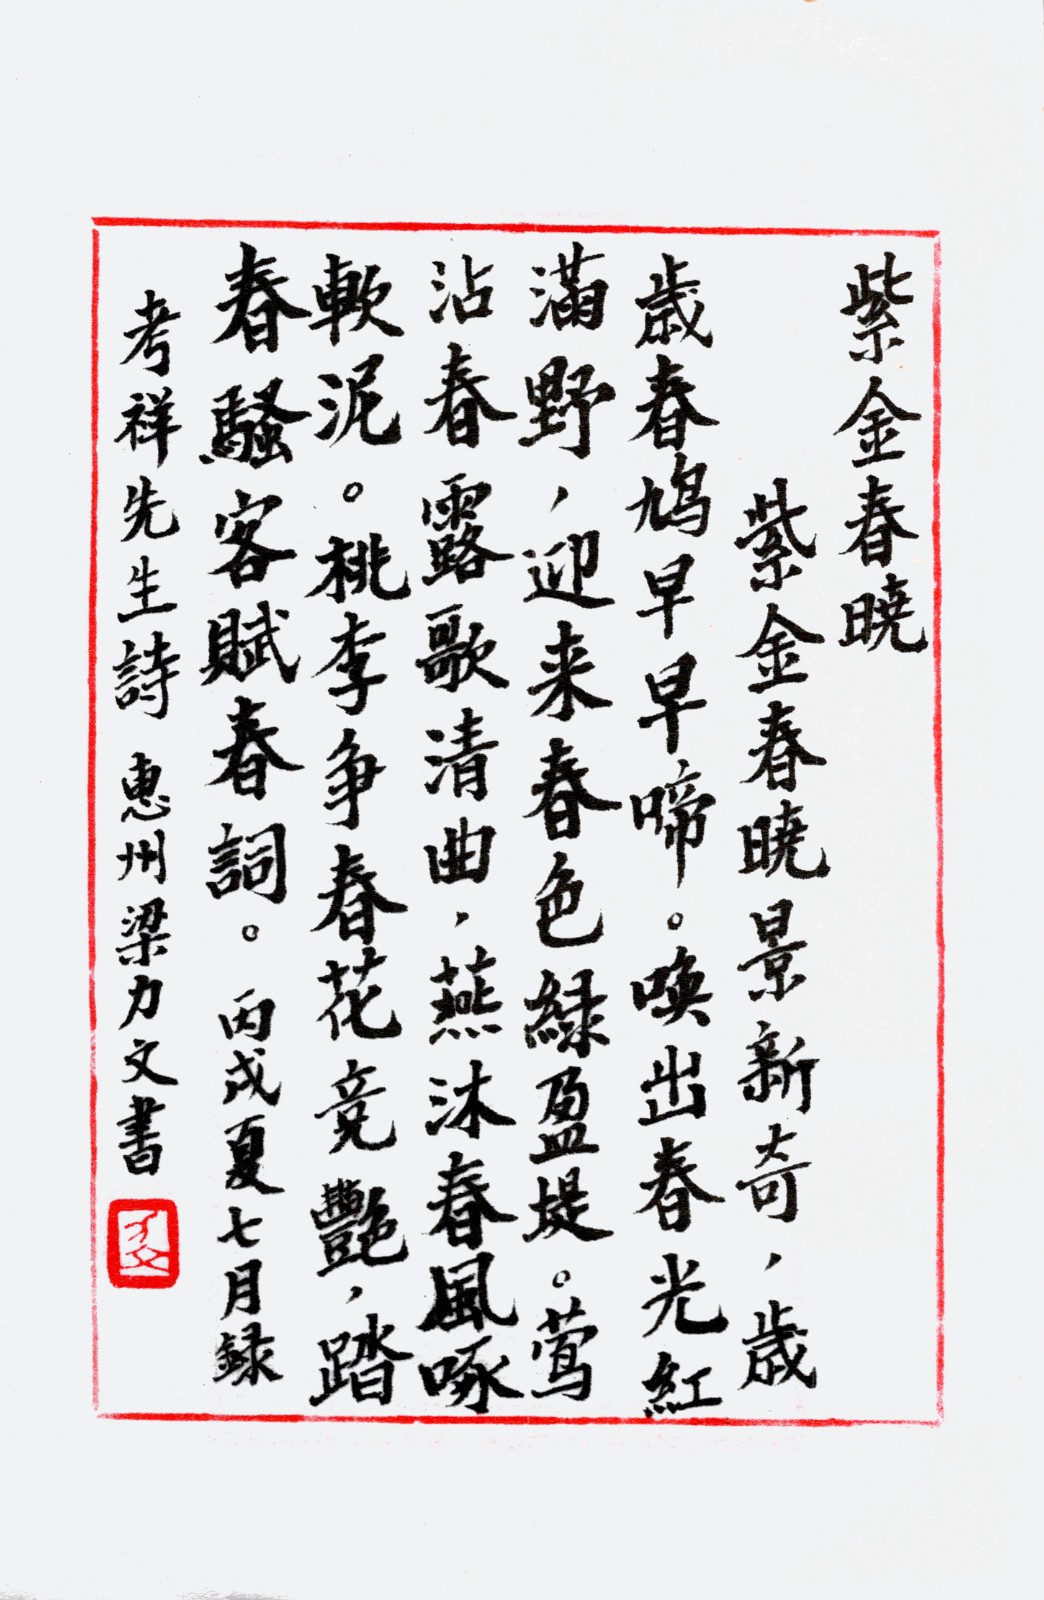 紫金春曉
紫金春曉景新奇，歲
歲春鳩早早啼。喚出春光紅
滿野，迎来春色緑盈堤。莺
沾春露歌清曲，燕沐春風啄
軟泥。桃李争春花竞艷，踏
春騷客賦春詞。丙戌夏七月録
考祥先生詩 惠州梁力文書